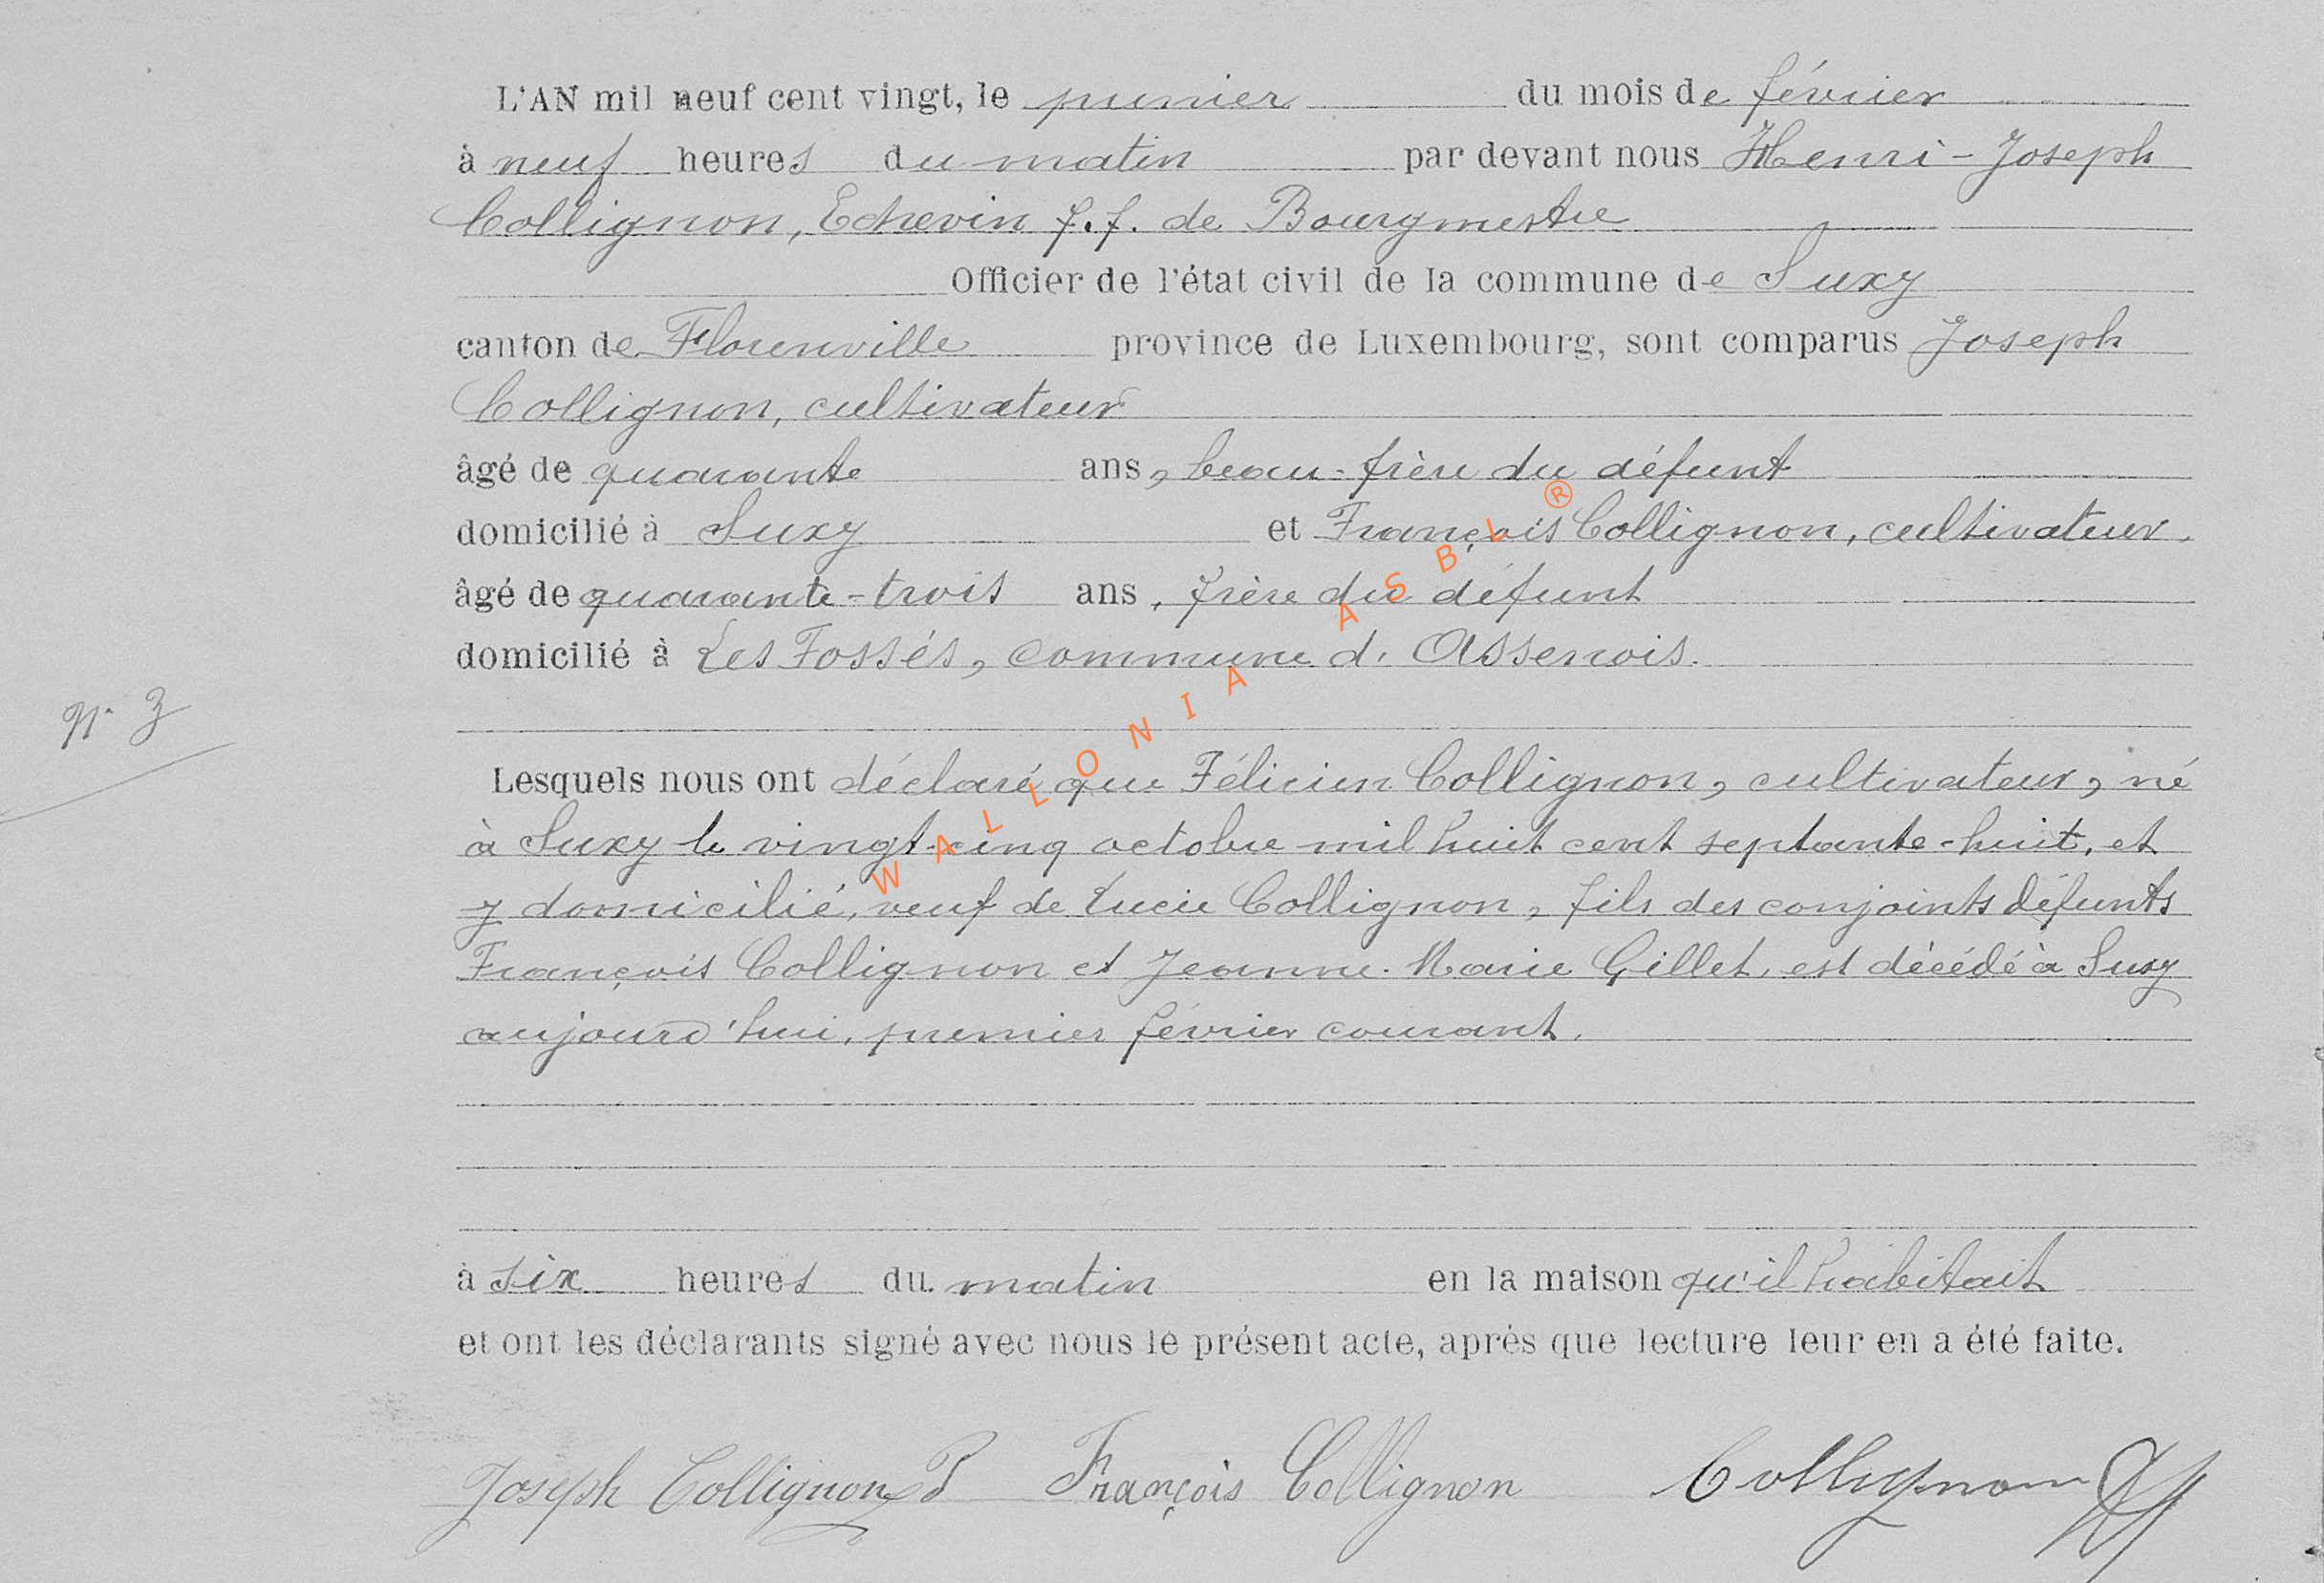 L'AN mil neuf cent vingt, le premier du mois de février
à neuf heures du matin par devant nous Henri-Joseph
Collignon, Echevin f.f. de Bourgmestre
Officier de l'état civil de la commune de Suxy
canton de Florenville province de Luxembourg, sont comparus Joseph
Collignon, cultivateur
âgé de quarante ans, beau-frère du défunt
domicilié à Suxy et François Collignon, cultivateur,
âgé de quarante-trois ans, frère du défunt
domicilié à Les Fossés, commune d'Assenois.
N° 3
Lesquels nous ont déclaré que Félicien Collignon, cultivateur, né
à Suxy le vingt-cinq octobre mil huit cent septante-huit, et
y domicilié, veuf de Lucie Collignon, fils des conjoints défunts
François Collignon et Jeanne-Marie Gillet, est décédé à Suxy
aujourd'hui, premier février courant.
à six heures du matin en la maison qu'il habitait
et ont les déclarants signé avec nous le présent acte, après que lecture leur en a été faite.
Joseph Collignon François Collignon Collignon
WALLONIA ASBL ®